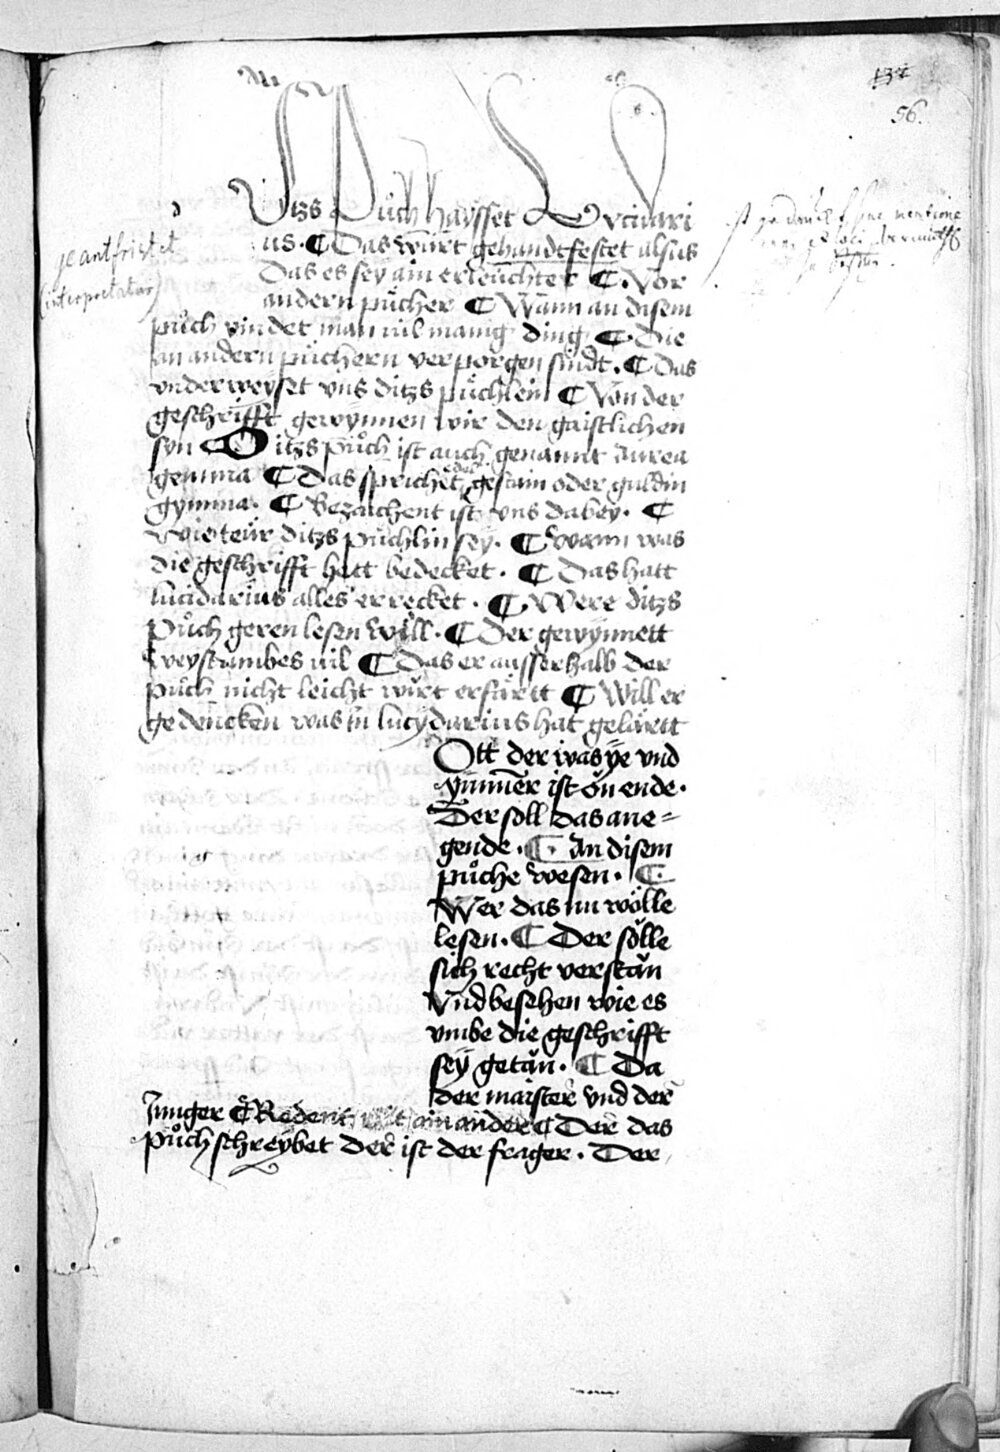 56.
Itzs Puͦch haysset Lucidari
us · ¶ Das wuͤrt gehandtfestet alsus
Das es sey ain erleuͤchter ¶ Vor
andern puͤcher ¶ Wann an disem
puͦch vindet man vil manig ding ¶ Die
an andern puͤchern verporgen sindt · ¶ Das
vnderweyset vns ditzs puͤchlein ¶ Von der
geschrifft gewynnen wir den gaistlichen
syn ¶ Ditzs puͦch ist auch genannt Aurea
gemma ¶ Das sprichet gestain oder guldin
gymma · ¶ Bezaichent ist vns dabey · ¶
Wie teuͤr ditzs puͤchlin sey · ¶ Wann was
die geschrifft hatt bedecket · ¶ Das hatt
lucidarius alles errecket · ¶ Were ditzs
Puͦch geren lesen woͤll · ¶ Der gewynnett
weystumbes vil ¶ Das er ausserhalb der
puͦch nicht leicht wuͤrt erfaͤrtt ¶ Will er
gedencken was in lucydarius hat gelaͤrtt
Ott der was ÿe vnd
ÿmmer ist on ende ·
Der soll das ane=
gende · ¶ · An disem
puͦche wesen · ¶ ·
Wer das nu woͤlle
lesen · ¶ Der soͤlle
sich recht verstan
Vnd besehen wie es
vmbe die geschrifft
seÿ getan · ¶ Da
der maister vnd der
Junger ¶ Redent mit ain ander ¶ Der das
puͦch schreybet der ist der frager · Der
ge antfristet
(interpretatur)